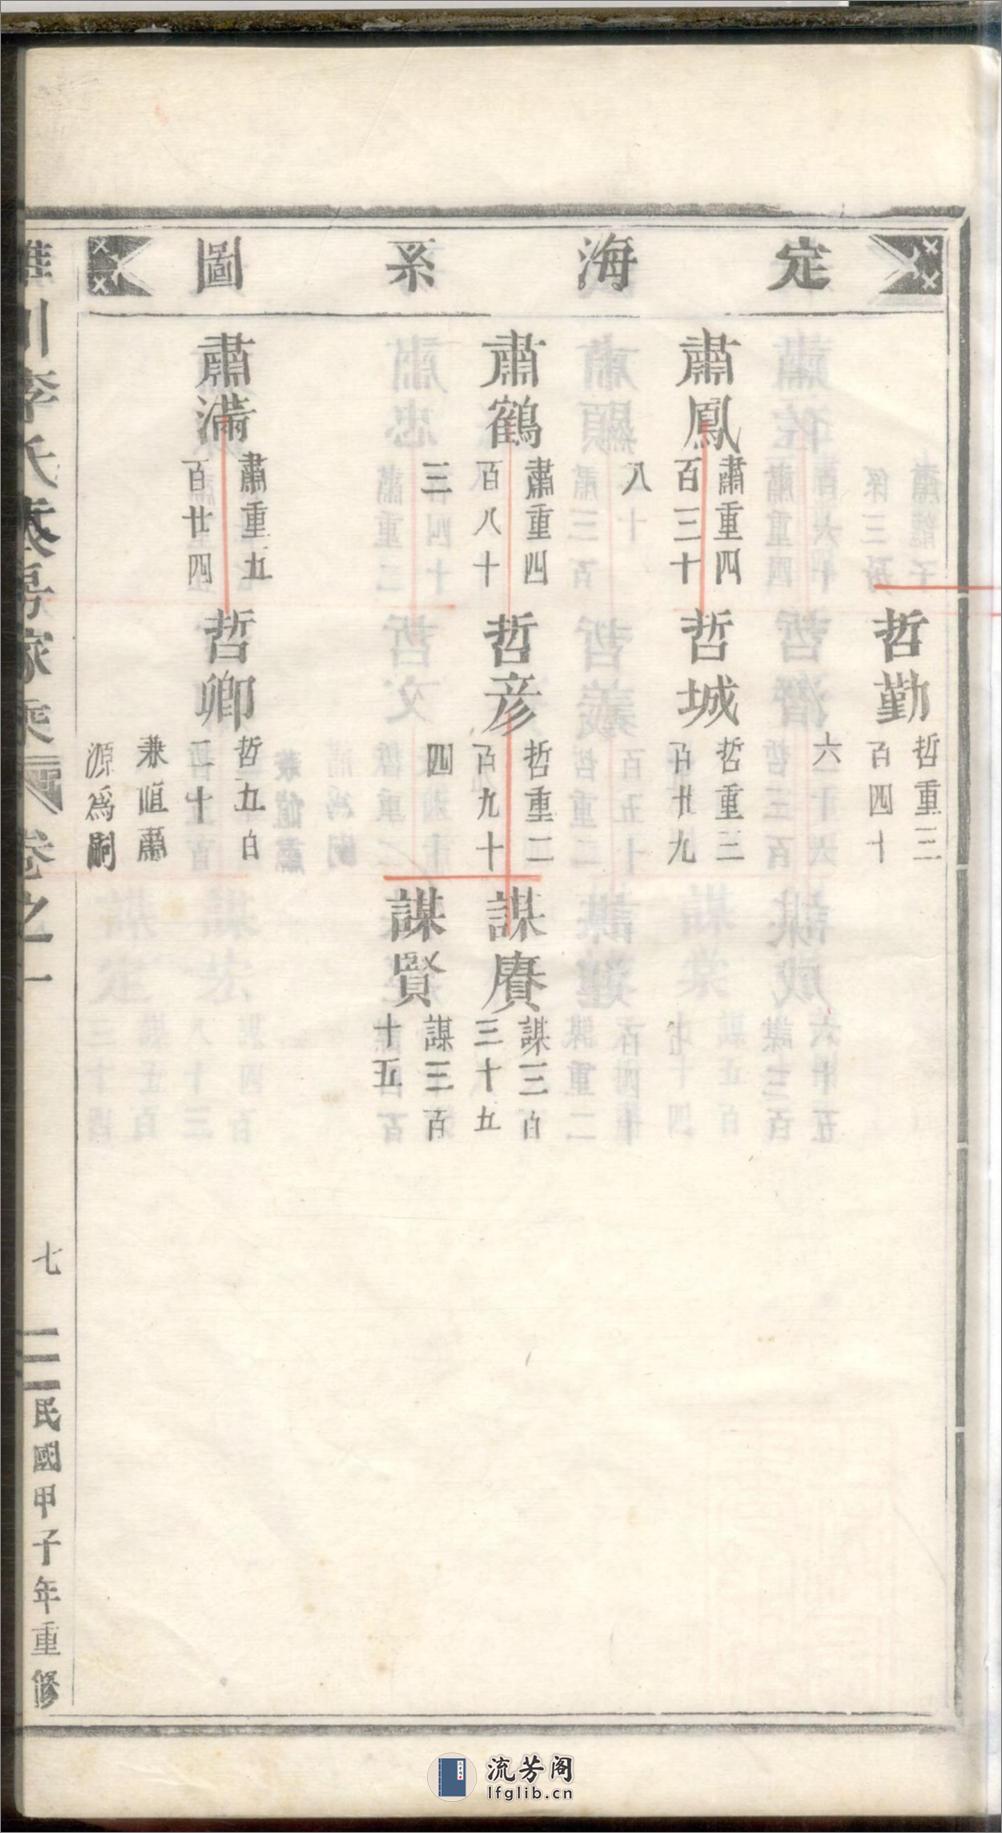 定海系圖
哲勤
哲重三
百四十
六
肅鳳
肅重四
百三十
八
哲城
哲重三
百廿九
肅鶴
肅重四
百八十
三
哲彦
哲重二
百九十
四
謀賡
謀三百
三十五
謀賢
謀三百
十五
肅滿
肅重五
百廿四
哲卿
哲五百
二十
兼祧肅
源爲嗣
川李氏 房家乘 卷之一
七
民國甲子年重修
流芳阁
lfglib.cn